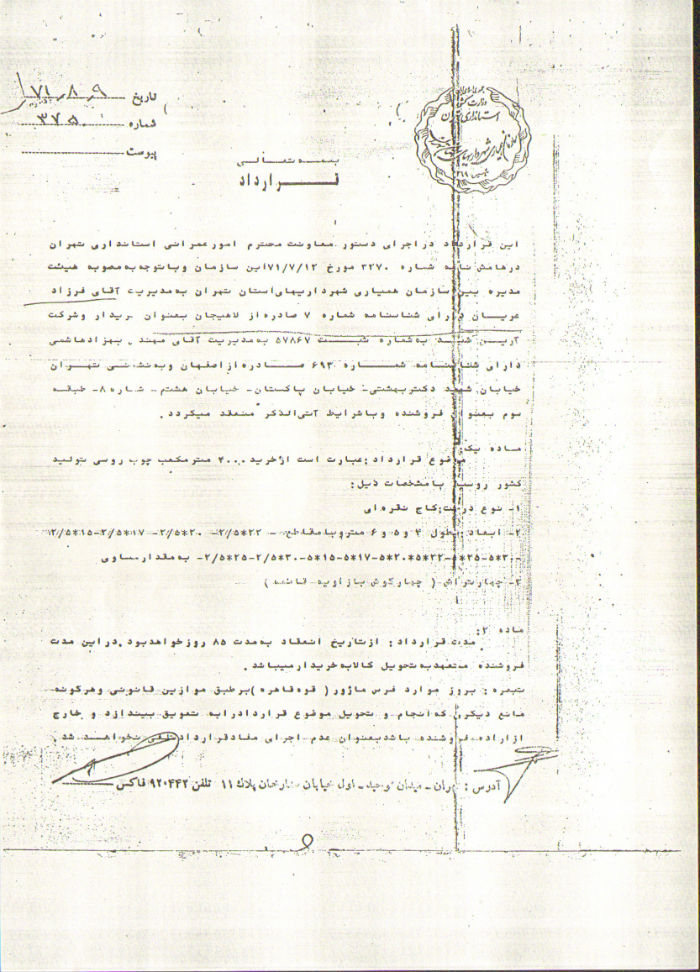 تاریخ ۷۱٫۸٫۹
شماره ۳۷۵۰
پیوست
استانداری تهران
بسمه تعالی
قرارداد
این قرارداد در اجرای دستور معاونت محترم امور عمرانی استانداری تهران
در هامش نامه شماره ۳۲۷۰ مورخ ۷۱/۷/۱۲ این سازمان و با توجه به مصوبه هیئت
مدیره بین سازمان همیاری شهرداریهای استان تهران به مدیریت آقای فرزاد
عریان دارای شناسنامه شماره ۷ صادره از لاهیجان بعنوان خریدار و شرکت
آرین به شماره ثبت ۵۷۸۶۷ به مدیریت آقای مهند . بهزاد هاشمی
دارای شناسنامه شماره ۶۹۳ صادره از اصفهان و به نشانی تهران
خیابان شهید دکتر بهشتی - خیابان پاکستان - خیابان هشتم - شماره ۸ - طبقه
سوم بعنوان فروشنده و با شرایط آتی الذکر منعقد میگردد .
ماده یک:
موضوع قرارداد : عبارت است از خرید ۴۰۰۰ متر مکعب چوب روسی تولید
کشور روسیه با مشخصات ذیل :
۱- نوع درخت : کاج نقره ای
۲- ابعاد : بطول ۴ و ۵ و ۶ متر و با مقاطع - ۲۲*۲/۵ - ۲۰*۲/۵ - ۱۷*۲/۵ - ۱۵*۲/۵
- ۳۰*۵ - ۲۵*۵ - ۲۲*۵ - ۲۰*۵ - ۱۷*۵ - ۱۵*۵ - ۳۰*۲/۵ - ۲۵*۲/۵ - به مقدار مساوی
۳- چهار تراش ( چهار گوش با زاویه قائمه )
ماده ۲:
مدت قرارداد : از تاریخ انعقاد به مدت ۸۵ روز خواهد بود . در این مدت
فروشنده متعهد به تحویل کالا به خریدار میباشد .
تبصره : بروز موارد فرس ماژور ( قوه قاهره ) بر طبق موازین قانونی و هرگونه
مانع دیگری که انجام و تحویل موضوع قرارداد را به تعویق بیندازد و خارج
از اراده فروشنده باشد بعنوان عدم اجرای مفاد قرارداد تلقی نخواهد شد .
آدرس : تهران - میدان توحید - اول خیابان ستارخان پلاک ۱۱ تلفن ۹۲۰۴۴۲ فاکس